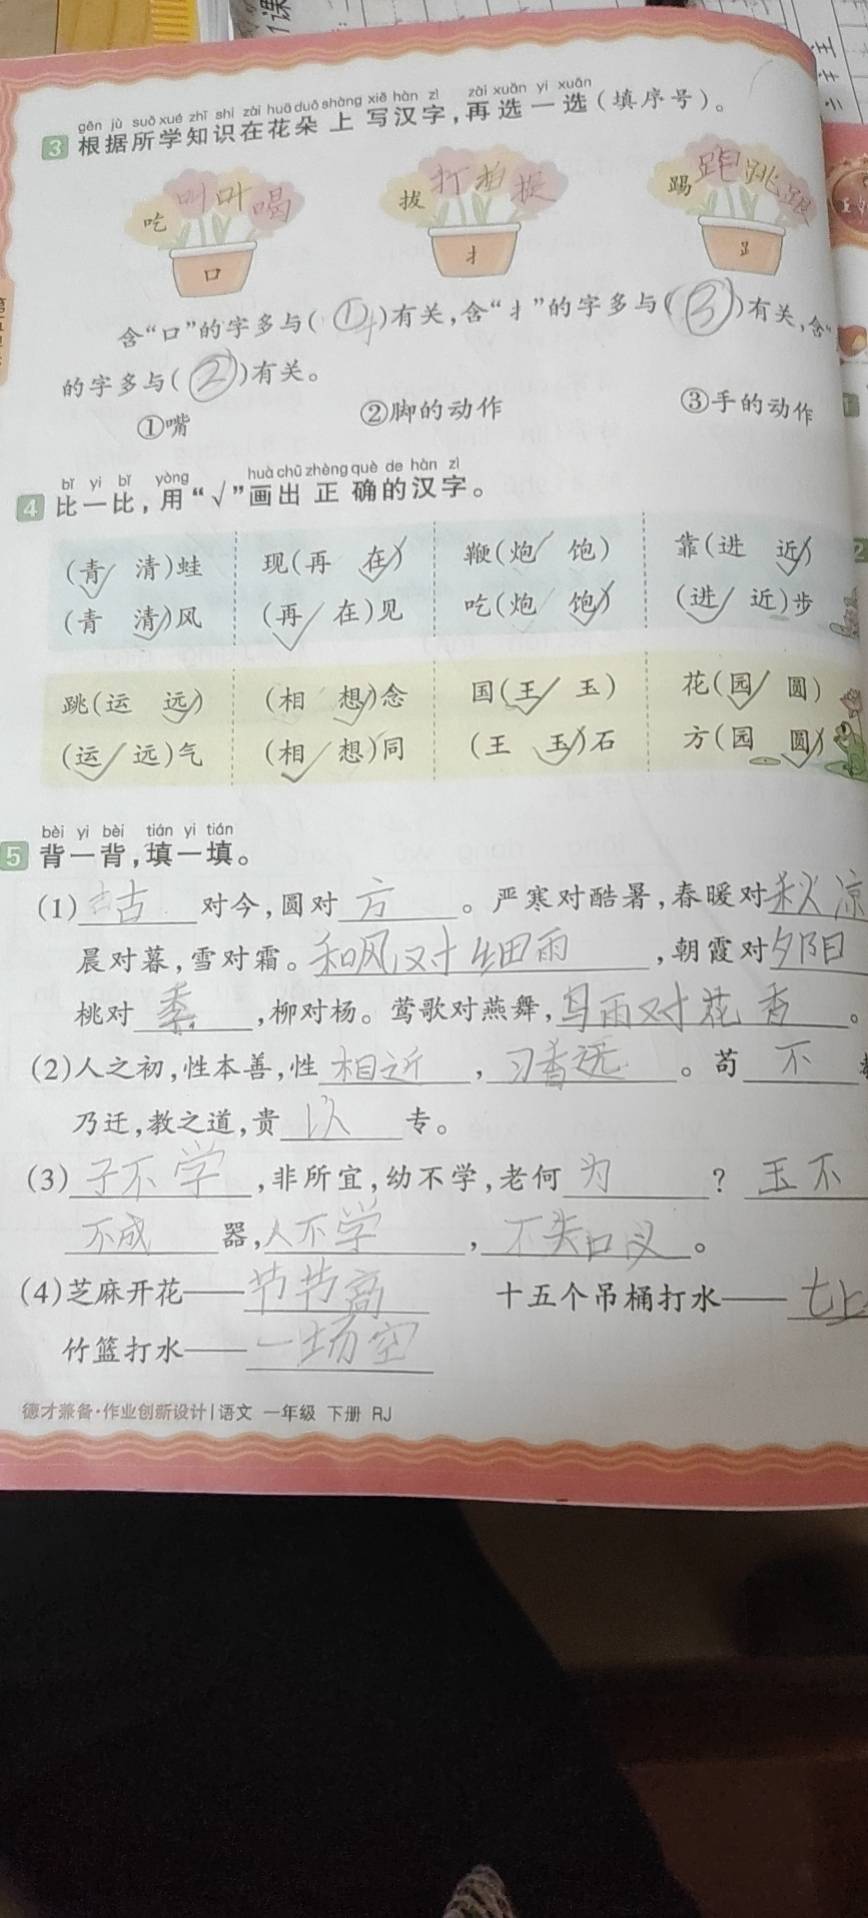 1课
gēn jù suǒ xué zhī shi zài huā duǒ shàng xiě hàn zì zài xuǎn yi xuǎn
3 根据所学知识在花朵上写汉字,再选一选(填序号)。
吃 叫 叶 喝 拔 打 拍 提 踢 跑 跳 跟
口 扌 𧾷
含“口”的字多与(①)有关,含“扌”的字多与(③)有关,含“
的字多与(②)有关。
①嘴 ②脚的动作 ③手的动作
bǐ yi bǐ yòng huà chū zhèng què de hàn zì
4 比一比,用“√”画出正确的汉字。
(青√ 清)蛙 现(再 在√) 鞭(炮√ 饱) 靠(进 近√)
(青 清√)风 (再√ 在)见 吃(炮 饱√) (进√ 近)步
跳(运 远√) (相 想√)念 国(王√ 玉) 花(园√ 圆)
(运√ 远)气 (相√ 想)同 (王 玉√)石 方(园 圆√)
bèi yi bèi tián yi tián
5 背一背,填一填。
(1)古对今,圆对方。严寒对酷暑,春暖对秋凉
晨对暮,雪对霜。和风对细雨,朝霞对夕阳
桃对李,柳对杨。莺歌对燕舞,鸟雨对花香。
(2)人之初,性本善,性相近,习香远。苟不
乃迁,教之道,贵以专。
(3)子不学,非所宜,幼不学,老何为?玉不
不成器,人不学,不失口义。
(4)芝麻开花——节节高 十五个吊桶打水——七上
竹篮打水——一场空
德才兼备·作业创新设计|语文 一年级 下册 RJ